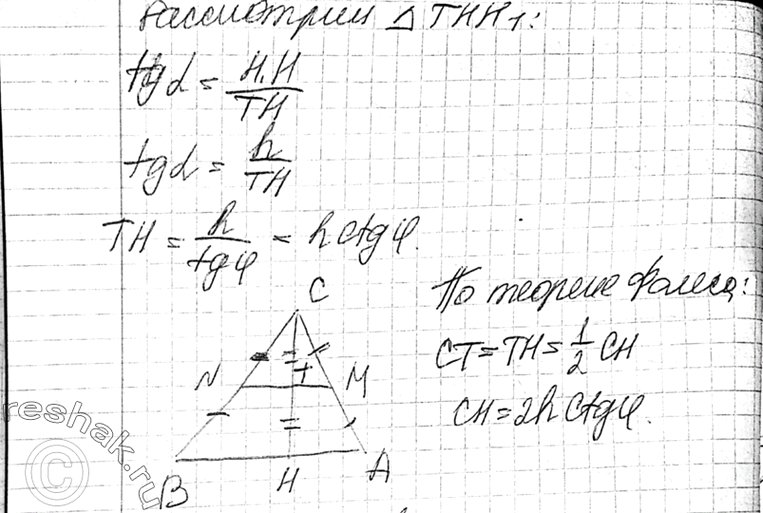 Рассмотрим △ THH₁:
tg α = H₁H / TH
tg α = h / TH
TH = h / tg φ = h ctg φ.
C
N T M
B H A
По теореме Фалеса:
CT = TH = 1/2 CH
CH = 2h ctg φ.
reshak.ru
©